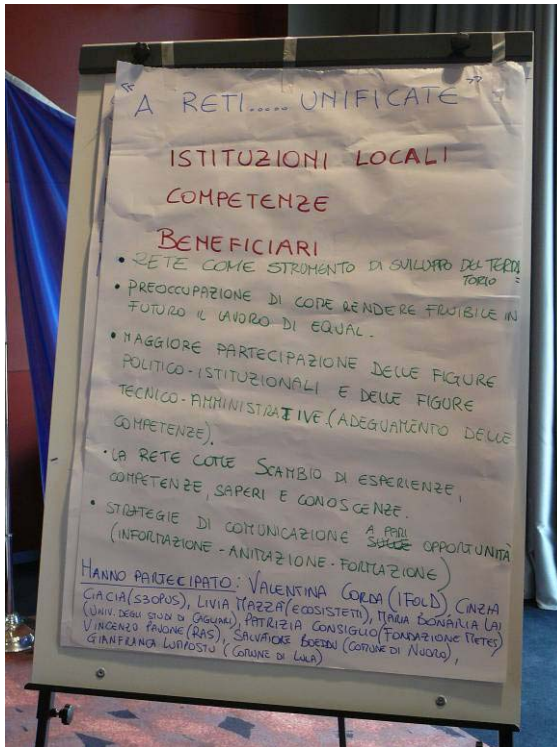 "A RETI..... UNIFICATE"
ISTITUZIONI LOCALI
COMPETENZE
BENEFICIARI
• RETE COME STRUMENTO DI SVILUPPO DEL TERRI
TORIO =
• PREOCCUPAZIONE DI COME RENDERE FRUIBILE IN
FUTURO IL LAVORO DI EQUAL.
• MAGGIORE PARTECIPAZIONE DELLE FIGURE
POLITICO-ISTITUZIONALI E DELLE FIGURE
TECNICO-AMMINISTRATIVE.(ADEGUAMENTO DELLE
COMPETENZE).
• LA RETE COME SCAMBIO DI ESPERIENZE,
COMPETENZE, SAPERI E CONOSCENZE.
• STRATEGIE DI COMUNICAZIONE A PARI OPPORTUNITÀ
(INFORMAZIONE - ANIMAZIONE - FORMAZIONE)
HANNO PARTECIPATO: VALENTINA CORDA (IFOLD), CINZIA
CIACIA (S3OPUS), LIVIA MAZZA (ECOSISTEMI), MARIA BONARIA LAI
(UNIV. DEGLI STUDI DI CAGLIARI), PATRIZIA CONSIGLIO (FONDAZIONE METES)
VINCENZO PAVONE (RAS), SALVATORE BOEDDU (COMUNE DI NUORO),
GIANFRANCA (COMUNE DI LULA)